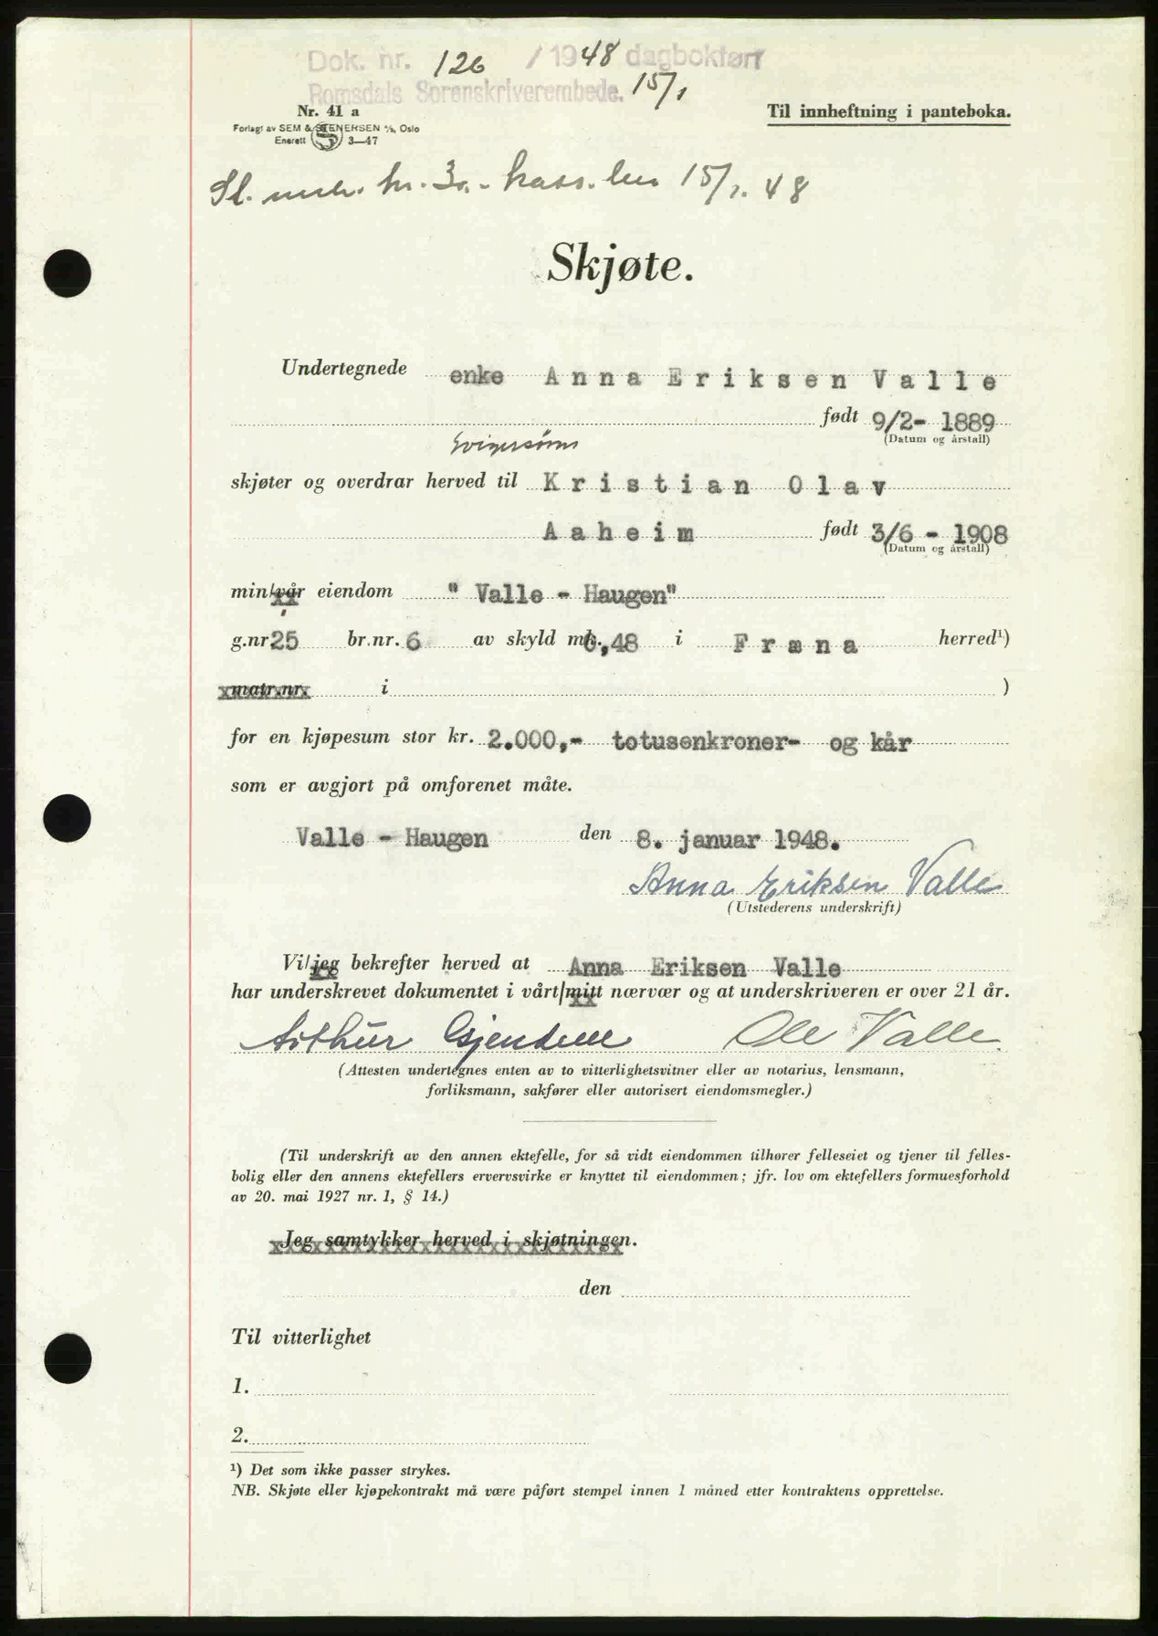 Dok. nr. 126 / 1948 dagbokført
Romsdals Sorenskriverembede. 15/1
Nr. 41 a
Forlagt av SEM & STENERSEN A/S, Oslo
Enerett S 3—47
Til innheftning i panteboka.
St. merk. kr. 30.- kass. 15/1. 48
Skjøte.
Undertegnede enke Anna Eriksen Valle
født 9/2- 1889
(Datum og årstall)
svigersøns
skjøter og overdrar herved til Kristian Olav
Aaheim født 3/6 - 1908
(Datum og årstall)
min/vår eiendom " Valle - Haugen"
g.nr 25 br.nr. 6 av skyld mk. 0,48 i Fræna herred¹)
matr.nr. i )
for en kjøpesum stor kr. 2.000,- totusenkroner- og kår
som er avgjort på omforenet måte.
Valle - Haugen den 8. januar 1948.
Anna Eriksen Valle
(Utstederens underskrift)
Vi/jeg bekrefter herved at Anna Eriksen Valle
har underskrevet dokumentet i vårt/mitt nærvær og at underskriveren er over 21 år.
Arthur Gjendem Ole Valle
(Attesten undertegnes enten av to vitterlighetsvitner eller av notarius, lensmann,
forliksmann, sakfører eller autorisert eiendomsmegler.)
(Til underskrift av den annen ektefelle, for så vidt eiendommen tilhører felleseiet og tjener til felles-
bolig eller den annens ektefellers ervervsvirke er knyttet til eiendommen; jfr. lov om ektefellers formuesforhold
av 20. mai 1927 nr. 1, § 14.)
Jeg samtykker herved i skjøtningen.
den
Til vitterlighet
1.
2.
¹) Det som ikke passer strykes.
NB. Skjøte eller kjøpekontrakt må være påført stempel innen 1 måned etter kontraktens opprettelse.